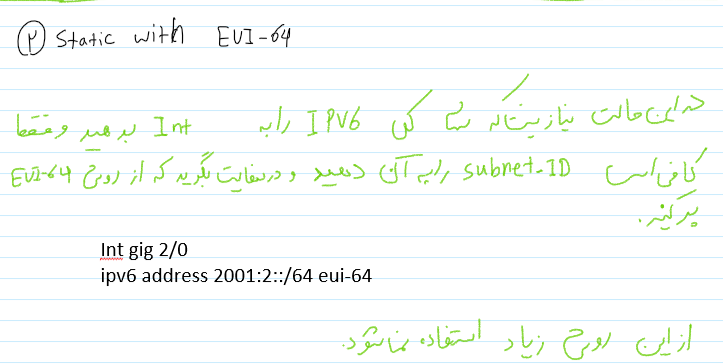 ۲ Static with EUI-64
در این حالت نیاز نیست که شما کل IPV6 را به Int بدهید و فقط
کافی است subnet-ID را به آن دهید و در نهایت بگویید که از روش EUI-64
پر کند.
Int gig 2/0
ipv6 address 2001:2::/64 eui-64
از این روش زیاد استفاده نمیشود.